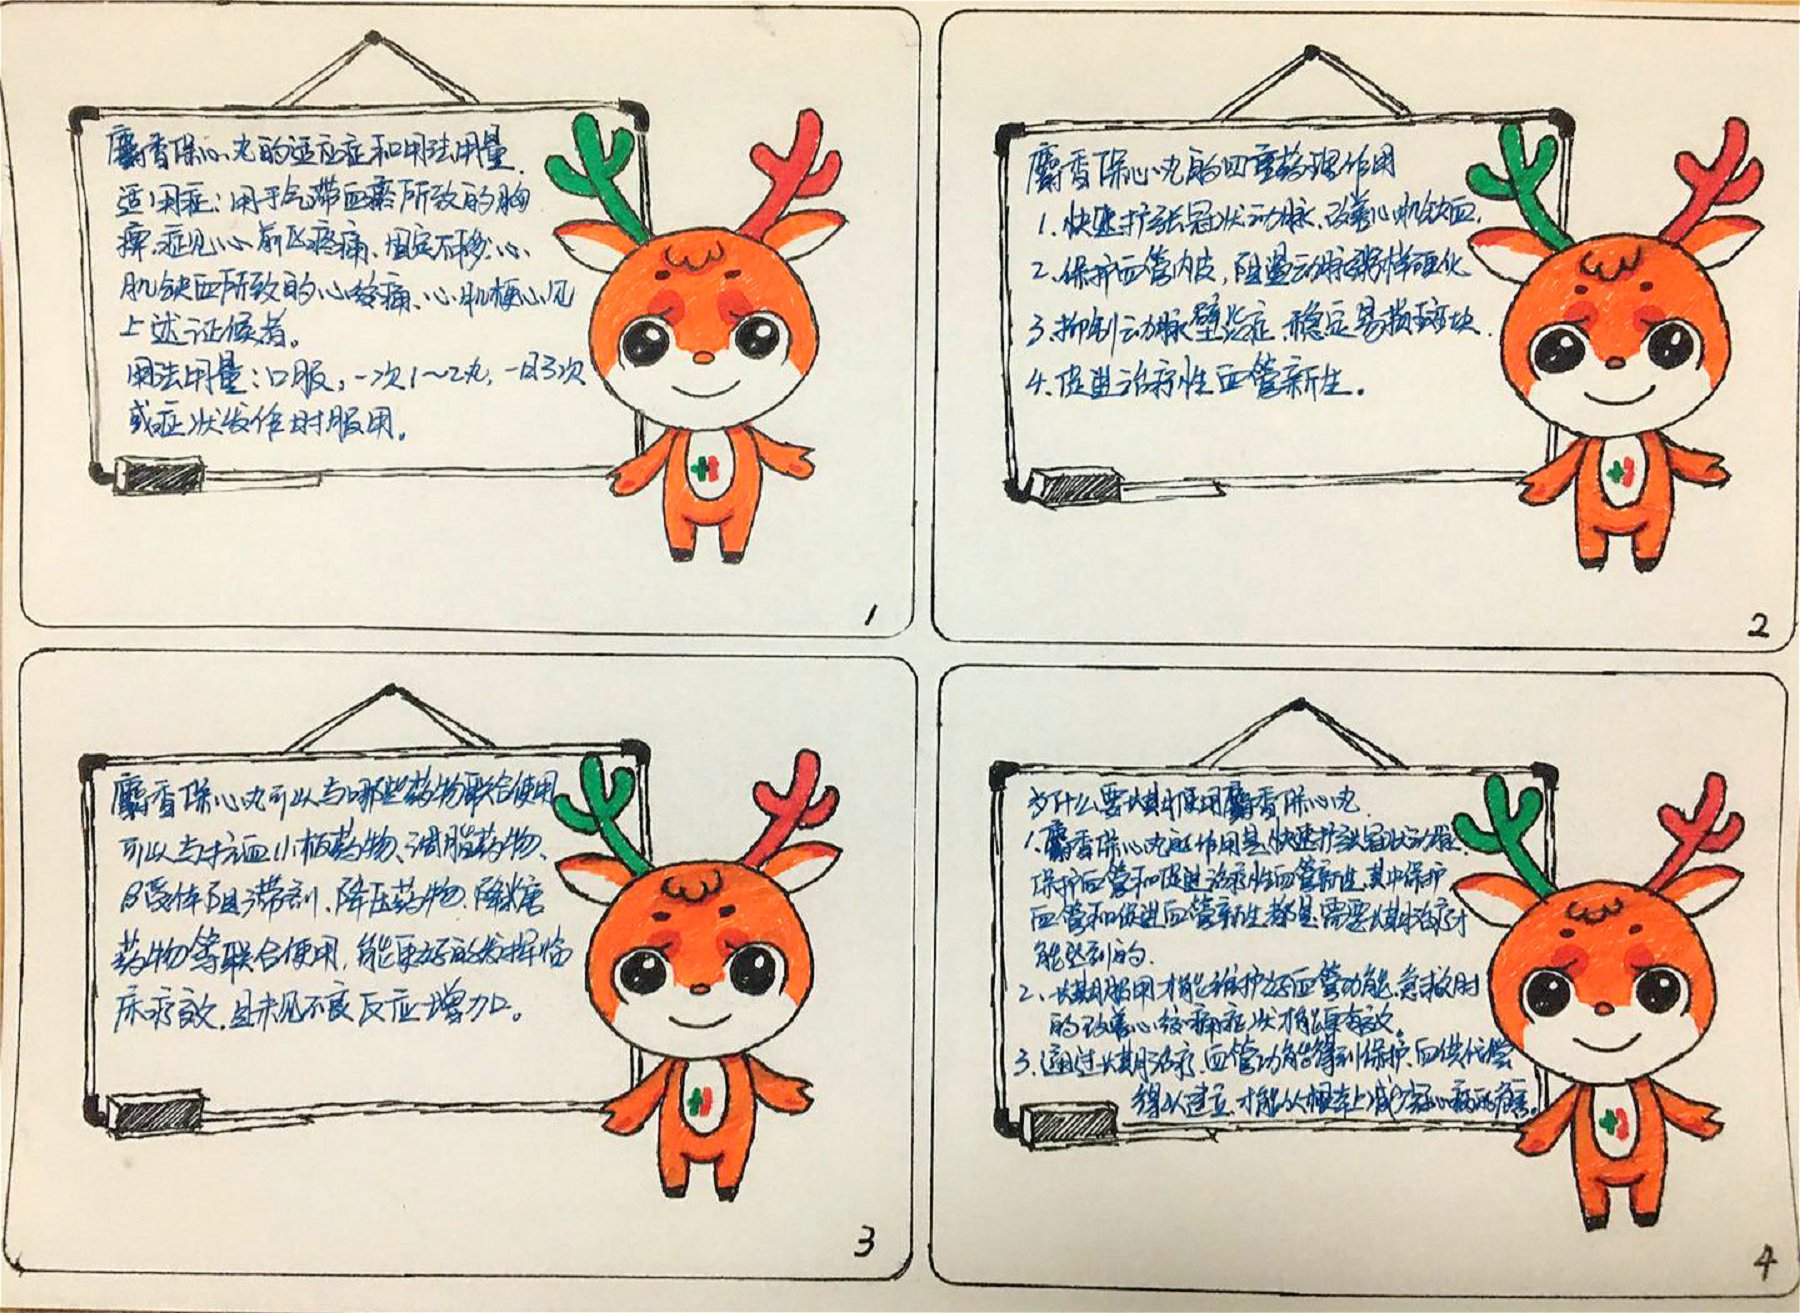 麝香保心丸的适应症和用法用量.
适用症：用于气滞血瘀所致的胸
痹,症见心前区疼痛、固定不移;心
肌缺血所致的心绞痛、心肌梗心见
上述证候者。
用法用量：口服，一次1～2丸，一日3次
或症状发作时服用。
1
麝香保心丸的四重药理作用
1.快速扩张冠状动脉,改善心肌缺血.
2.保护血管内皮，阻遏动脉粥样硬化
3.抑制动脉壁炎症,稳定易损斑块.
4.促进治疗性血管新生。
2
麝香保心丸可以与哪些药物联合使用
可以与抗血小板药物、调脂药物、
β受体阻滞剂、降压药物、降糖
药物等联合使用,能更好的发挥临
床疗效,且未见不良反应增加。
3
为什么要长期使用麝香保心丸
1.麝香保心丸的作用是快速扩张冠状动脉.
保护血管和促进治疗性血管新生,其中保护
血管和促进血管新生都是需要长期治疗才
能达到的.
2、长期服用才能维护好血管功能,急救时
的改善心绞痛症状才能更有效。
3.通过长期服治疗,血管功能得到保护,血供代偿
得以建立,才能从根本上减少冠心病的危害。
4